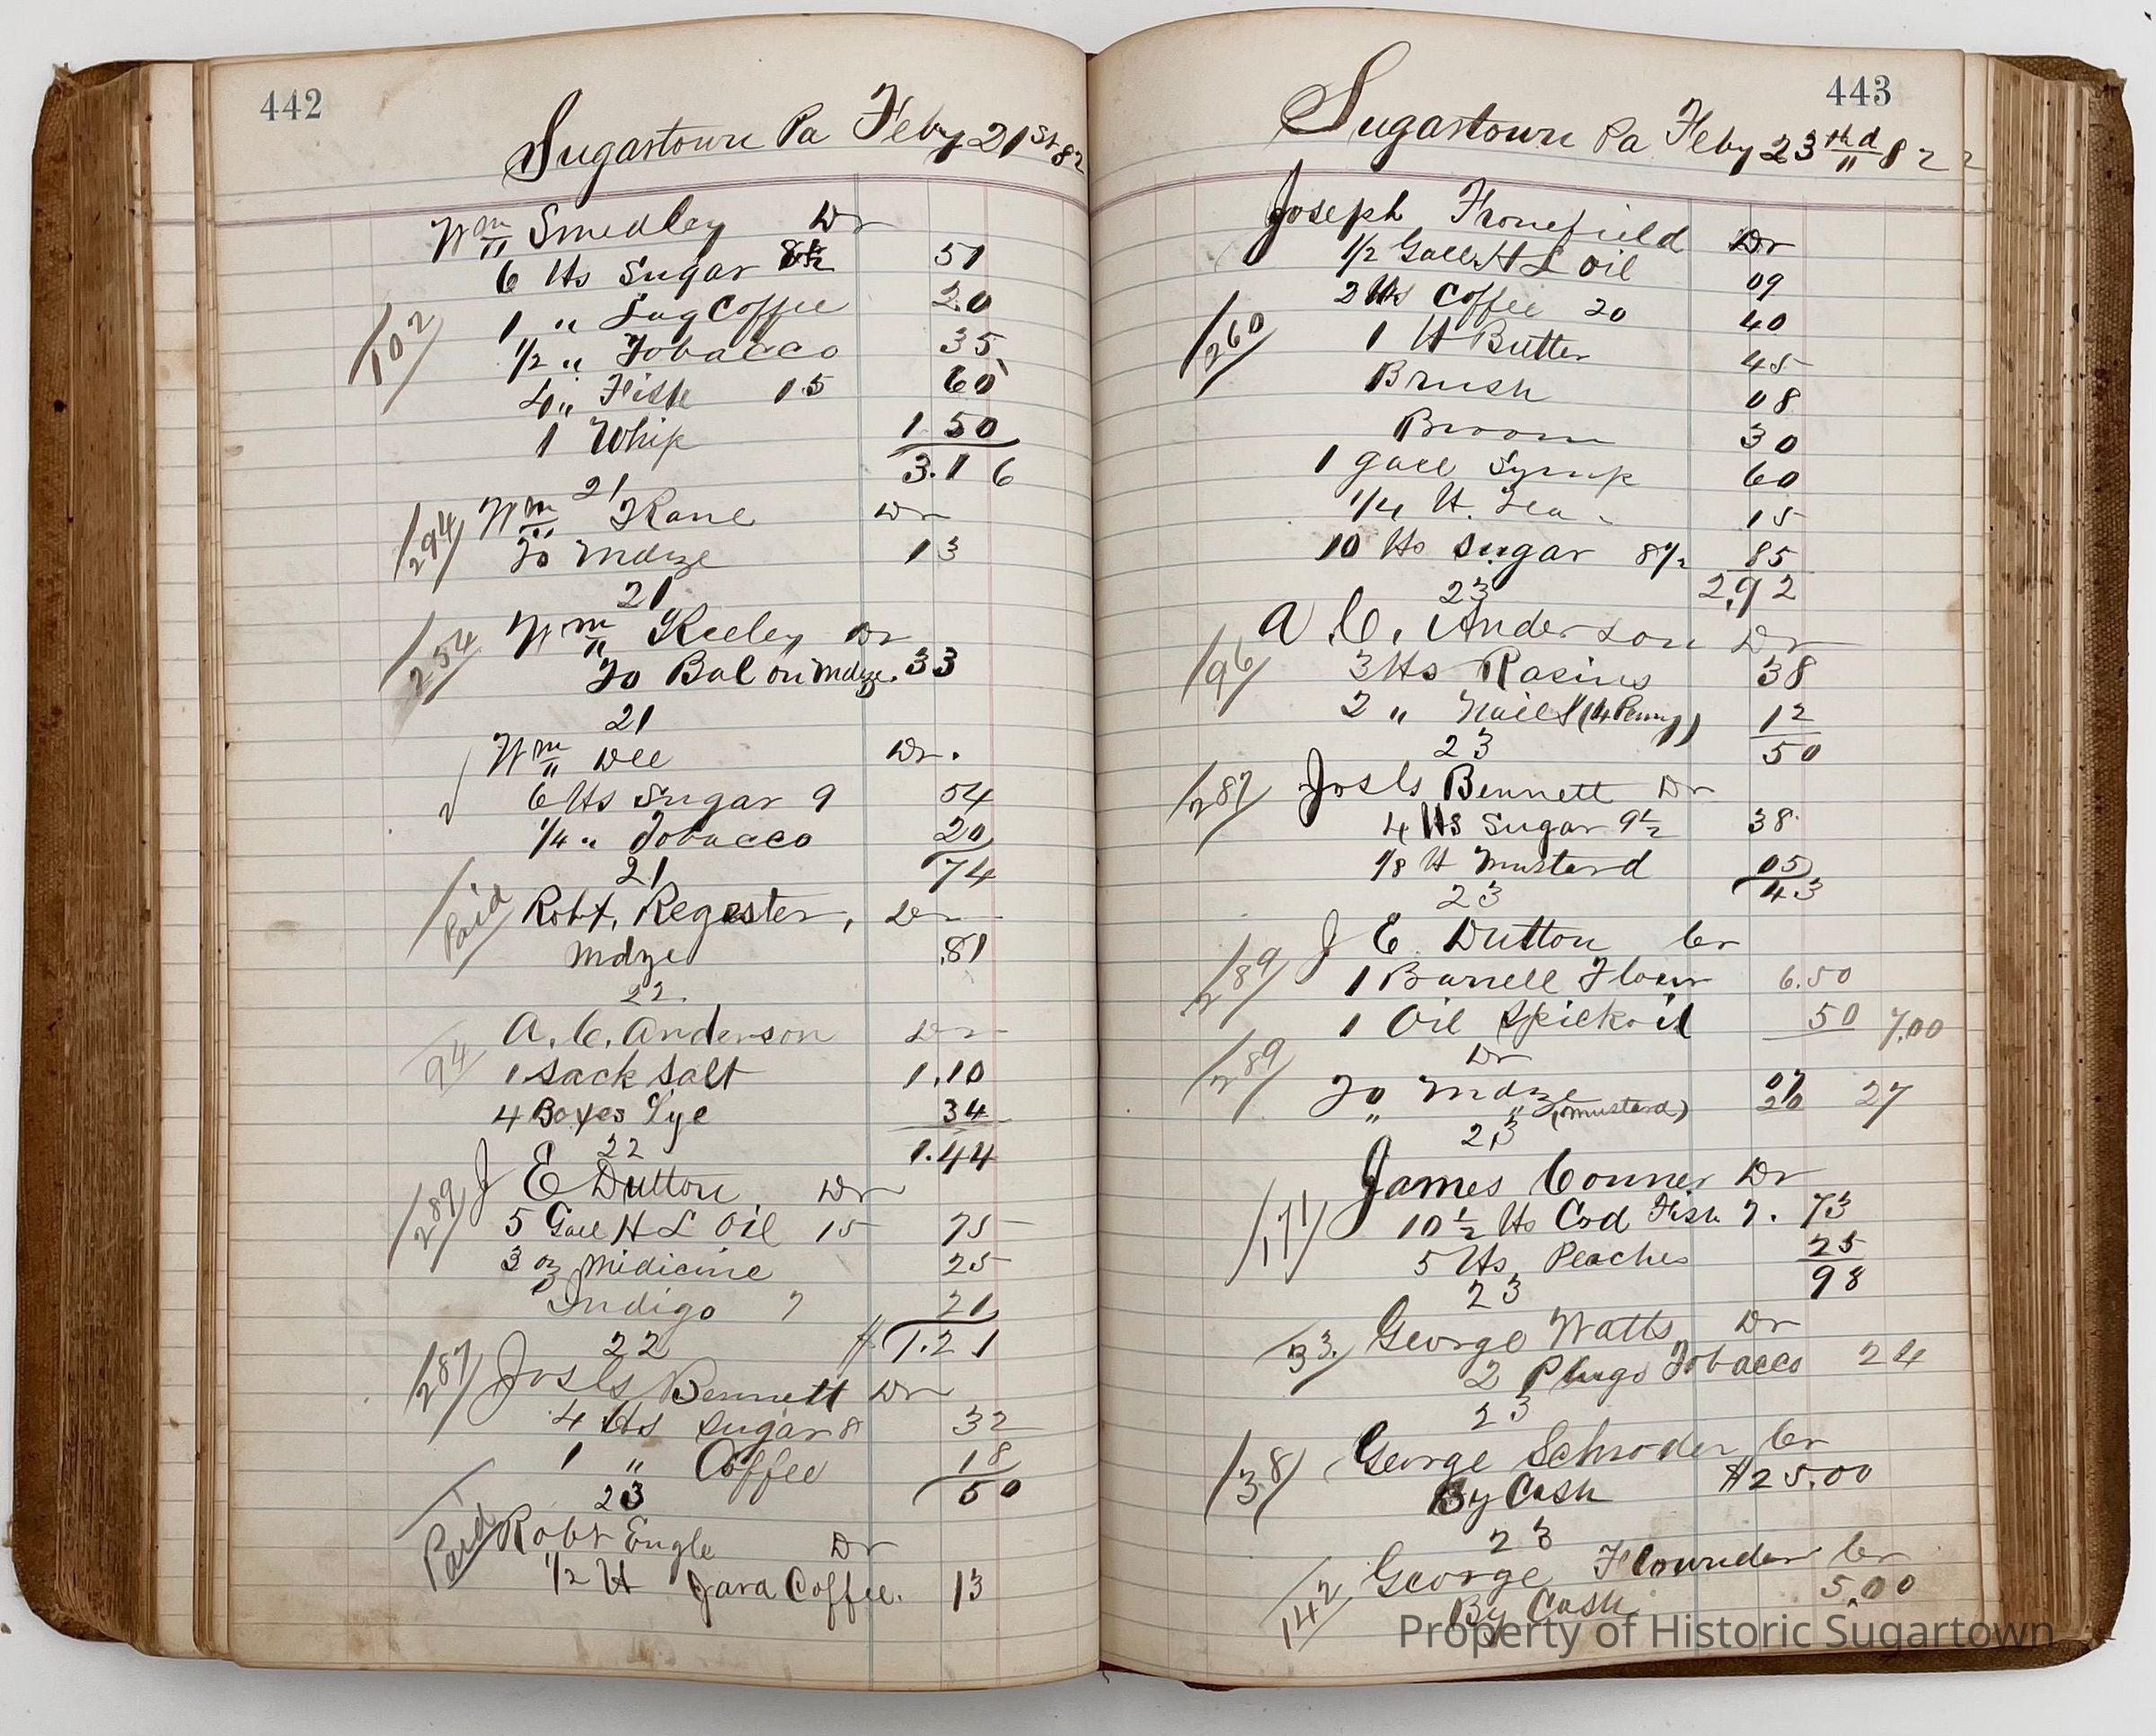 442
Sugartown Pa Feby 21st 82
Wm Smedley Dr
6 lbs Sugar 8½ 51
102
1 " Lag Coffee 20
½ " Tobacco 35
4 " Fish 15 60
1 Whip 1 50
3.16
21
294
Wm Kane Dr
To Mdze 13
21
254
Wm Keeley Dr
To Bal on Mdze. 33
21
Wm Dee Dr.
6 lbs Sugar 9 54
¼ " Tobacco 20
74
21
Paid
Robt, Regester, Dr
Mdze .81
22.
94
A. C. Anderson Dr
1 Sack Salt 1.10
4 Boxes Lye 34
1.44
22
289
J E Dutton Dr
5 Gall H L Oil 15 75
3 oz Midicine 25
Indigo 7 21
22 1.21
287
Josls Bennett Dr
4 lbs Sugar 8 32
1 " Coffee 18
50
23
Paid
Robt Engle Dr
½ lb Java Coffee. 13
443
Sugartown Pa Feby 23d 82
Joseph Fronefield Dr
½ Gall H L Oil 09
2 lbs Coffee 20 40
260
1 lb Butter 45
Brush 08
Broom 30
1 gall Syrup 60
¼ lb. Tea 15
10 lbs Sugar 8½ 85
2.92
23
A. C. Anderson Dr
96
3 lbs Rasins 38
2 " Nails (14 Penny) 12
50
23
287
Josls Bennett Dr
4 lbs Sugar 9½ 38
⅛ lb Mustard 05
43
23
289
J E Dutton Cr
1 Barrell Flour 6.50
1 Oil 50 7.00
289
Dr
To Mdze 07
" " (mustard) 20 27
23
James Conner Dr
171
10½ lbs Cod Fish 7. 73
5 lbs Peaches 25
98
23
33.
George Watts Dr
2 Plugs Tobacco 24
23
38
George Schroder Cr
By Cash $25.00
23
142
George Flounders Cr
By Cash 5.00
Property of Historic Sugartown